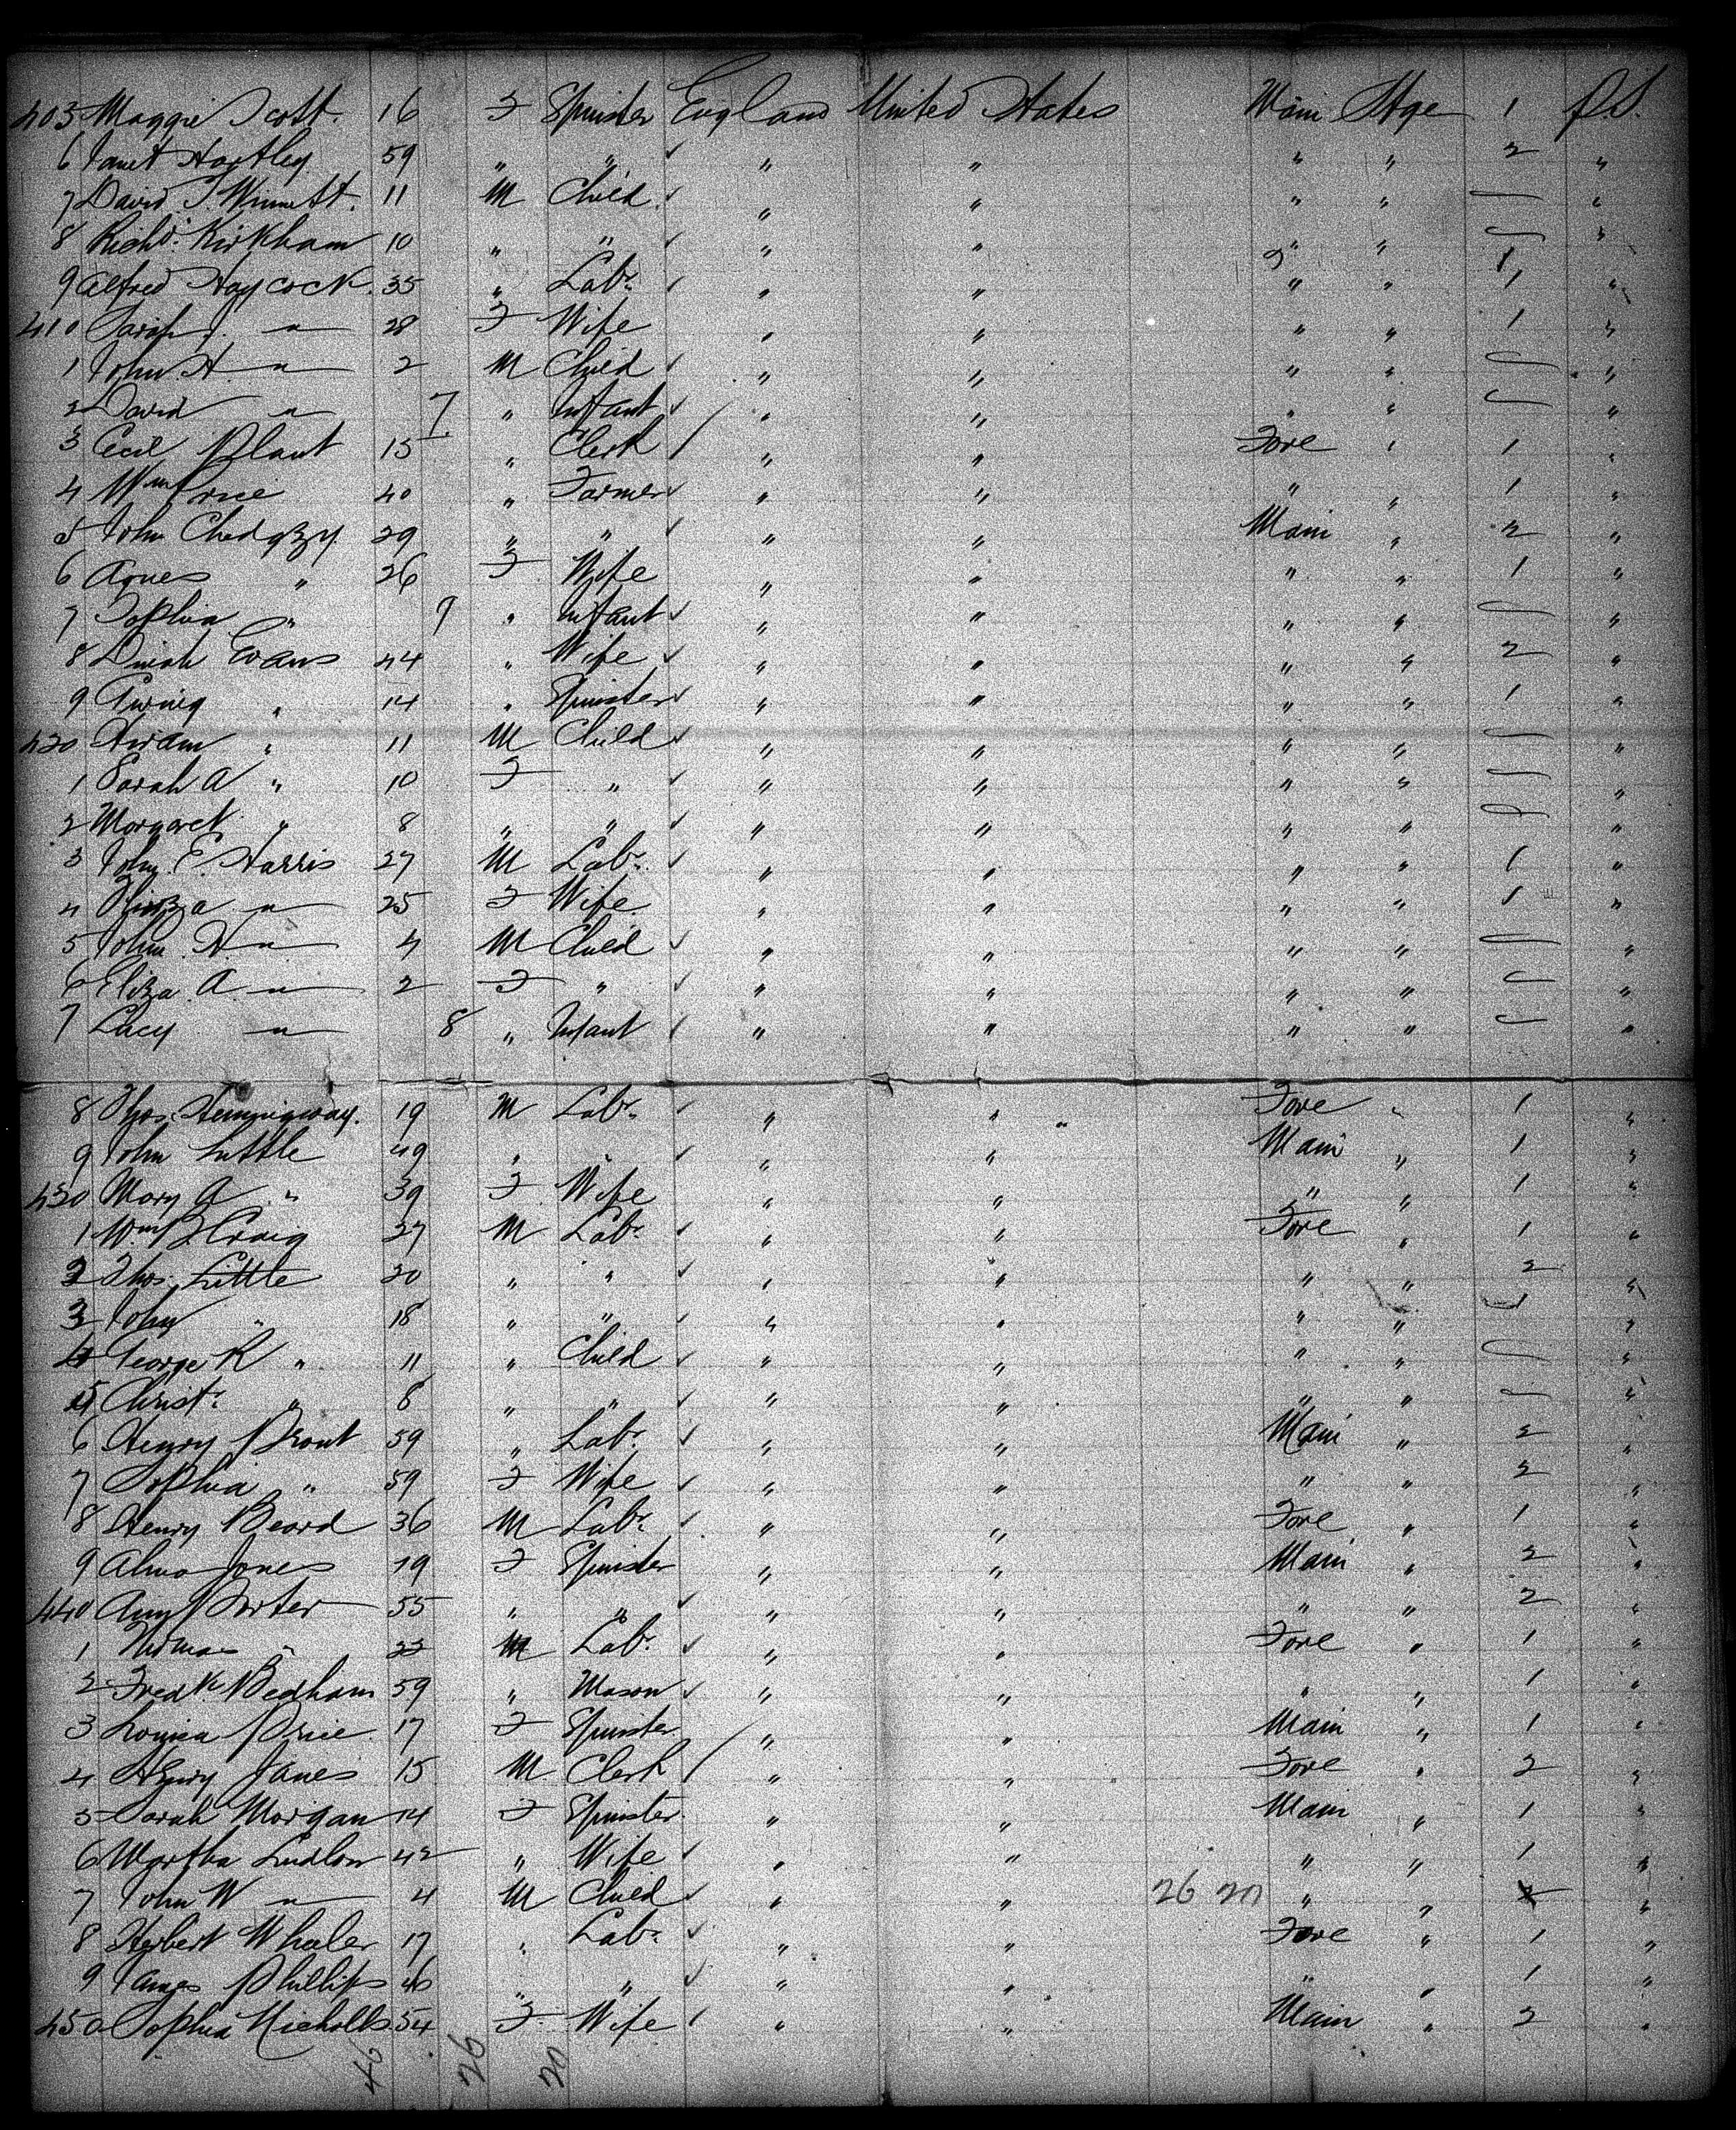 405 Maggie Scott. 16 F Spinster England United States Main Stge 1 P.S.
6 Janet Hartley 59 " " ✓ " " " " 2 "
7 David T. Winnett. 11 M Child. ✓ " " " " — "
8 Richd. Kirkham 10 " " ✓ " " " " — "
9 Alfred Haycock. 35 " Labr. ✓ " " " " 1 "
410 Sarah J. " 28 F Wife " " " " 1 "
1 John H. " 2 M Child ✓ " " " " — "
2 David " 7 " Infant ✓ " " " " — "
3 Cecil Plant 15 " Clerk / " " Fore " 1 "
4 Wm Price 40 " Farmer ✓ " " " " 1 "
5 John Chedgzy 29 " " ✓ " " Main " 2 "
6 Agnes " 26 F Wife " " " " 1 "
7 Sophia " 9 " Infant ✓ " " " " — "
8 Dinah Evans 44 " Wife ✓ " " " " 2 "
9 " 14 " Spinster ✓ " " " " 1 "
420 Hiram " 11 M Child ✓ " " " " — "
1 Sarah A " 10 F " ✓ " " " " — "
2 Margaret " 8 " " ✓ " " " " — "
3 John E. Harris 27 M Labr. ✓ " " " " 1 "
4 " 25 F Wife. " " " " 1 "
5 John H. " 4 M Child ✓ " " " " — "
6 Eliza A. " 2 F " ✓ " " " " — "
7 Lucy " 8 " Infant ✓ " " " " — "
8 Thos. Hemmingway. 19 M Labr. ✓ " " Fore " 1 "
9 John Tuttle 49 " " ✓ " " Main " 1 "
430 Mary A " 39 F Wife " " " " 1 "
1 Wm B Craig 27 M Labr. ✓ " " Fore " 1 "
2 Thos. Little 20 " " ✓ " " " " 2 "
3 John " 18 " " ✓ " " " " 1 "
4 George R " 11 " Child ✓ " " " " — "
5 Christr. " 8 " " ✓ " " " " — "
6 Henry Prout 59 " Labr. ✓ " " Main " 2 "
7 Sophia " 59 F Wife ✓ " " " " 2 "
8 Henry Beard 36 M Labr. ✓ " " Fore " 1 "
9 Alma Jones 19 F Spinster " " Main " 2 "
440 Ann Porter 55 " " ✓ " " " " 2 "
1 Thomas " 22 M Labr. ✓ " " Fore " 1 "
2 Fredk. Bedham 59 " Mason ✓ " " " " 1 "
3 Louisa Price. 17 F Spinster. " " Main " 1 "
4 Henry Janes 15 M. Clerk / " " Fore " 2 "
5 Sarah Morgan 14 F Spinster. " " Main " 1 "
6 Martha Ludlow 42 " Wife ✓ " " " " 1 "
7 John W " 4 M Child ✓ " " 26 20 " " "
8 Herbert Wheeler 17 " Labr. ✓ " " Fore " 1 "
9 James Phillips 46 " " ✓ " " " " 1 "
450 Sophia Nicholls 54 F Wife ✓ " " Main " 2 "
46 26 20